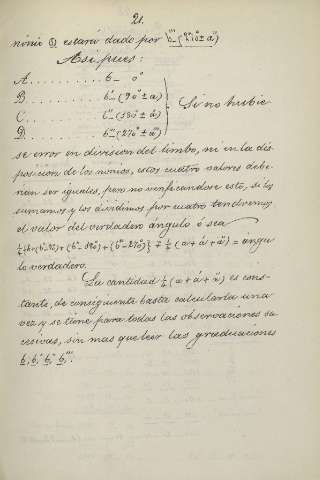 21.
nónio D estará dado por b'''-(270°±a'')
Asi pues:
A.......... b - 0°
B.......... b'-(90°±a)
C.......... b''-(180°±a')
D.......... b'''-(270°±a'')
Si no hubie
se error en division del limbo, ni en la dis
posicion de los nónios, estos cuatro valores debe-
rían ser iguales, pero no verificandose esto, si los
sumamos y los dividimos por cuatro tendremos
el valor del verdadero ángulo ó sea
(b'-90)+(b''-180)+(b'''-270)} ∓ ¼(a+a'+a'') = ángu
lo verdadero.
La cantidad ¼(a+a'+a'') es cons-
tante, de consiguiente basta calcularla una
vez y se tiene para todas las observaciones su
cesivas, sin mas que leer las graduaciones
b, b', b'', b'''.